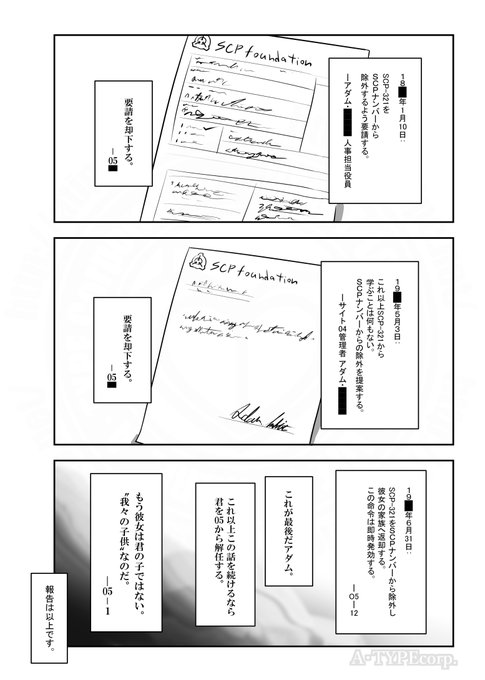 18■年1月10日:
SCP-321を
SCPナンバーから
除外するよう要請する。
ーアダム・■■■ 人事担当役員
SCP foundation
要請を却下する。
―05■
19■年5月3日:
これ以上SCP-321から
学ぶことは何もない。
SCPナンバーからの除外を提案する。
ーサイト04管理者 アダム・■■■
SCP foundation
要請を却下する。
―05■
19■年6月31日:
SCP-321をSCPナンバーから除外し
彼女の家族へ返却する。
この命令は即時発効する。
―O5―12
これが最後だアダム。
これ以上この話を続けるなら
君を05から解任する。
もう彼女は君の子ではない。
“我々の子供”なのだ。
―05―1
報告は以上です。
A-TYPEcorp.